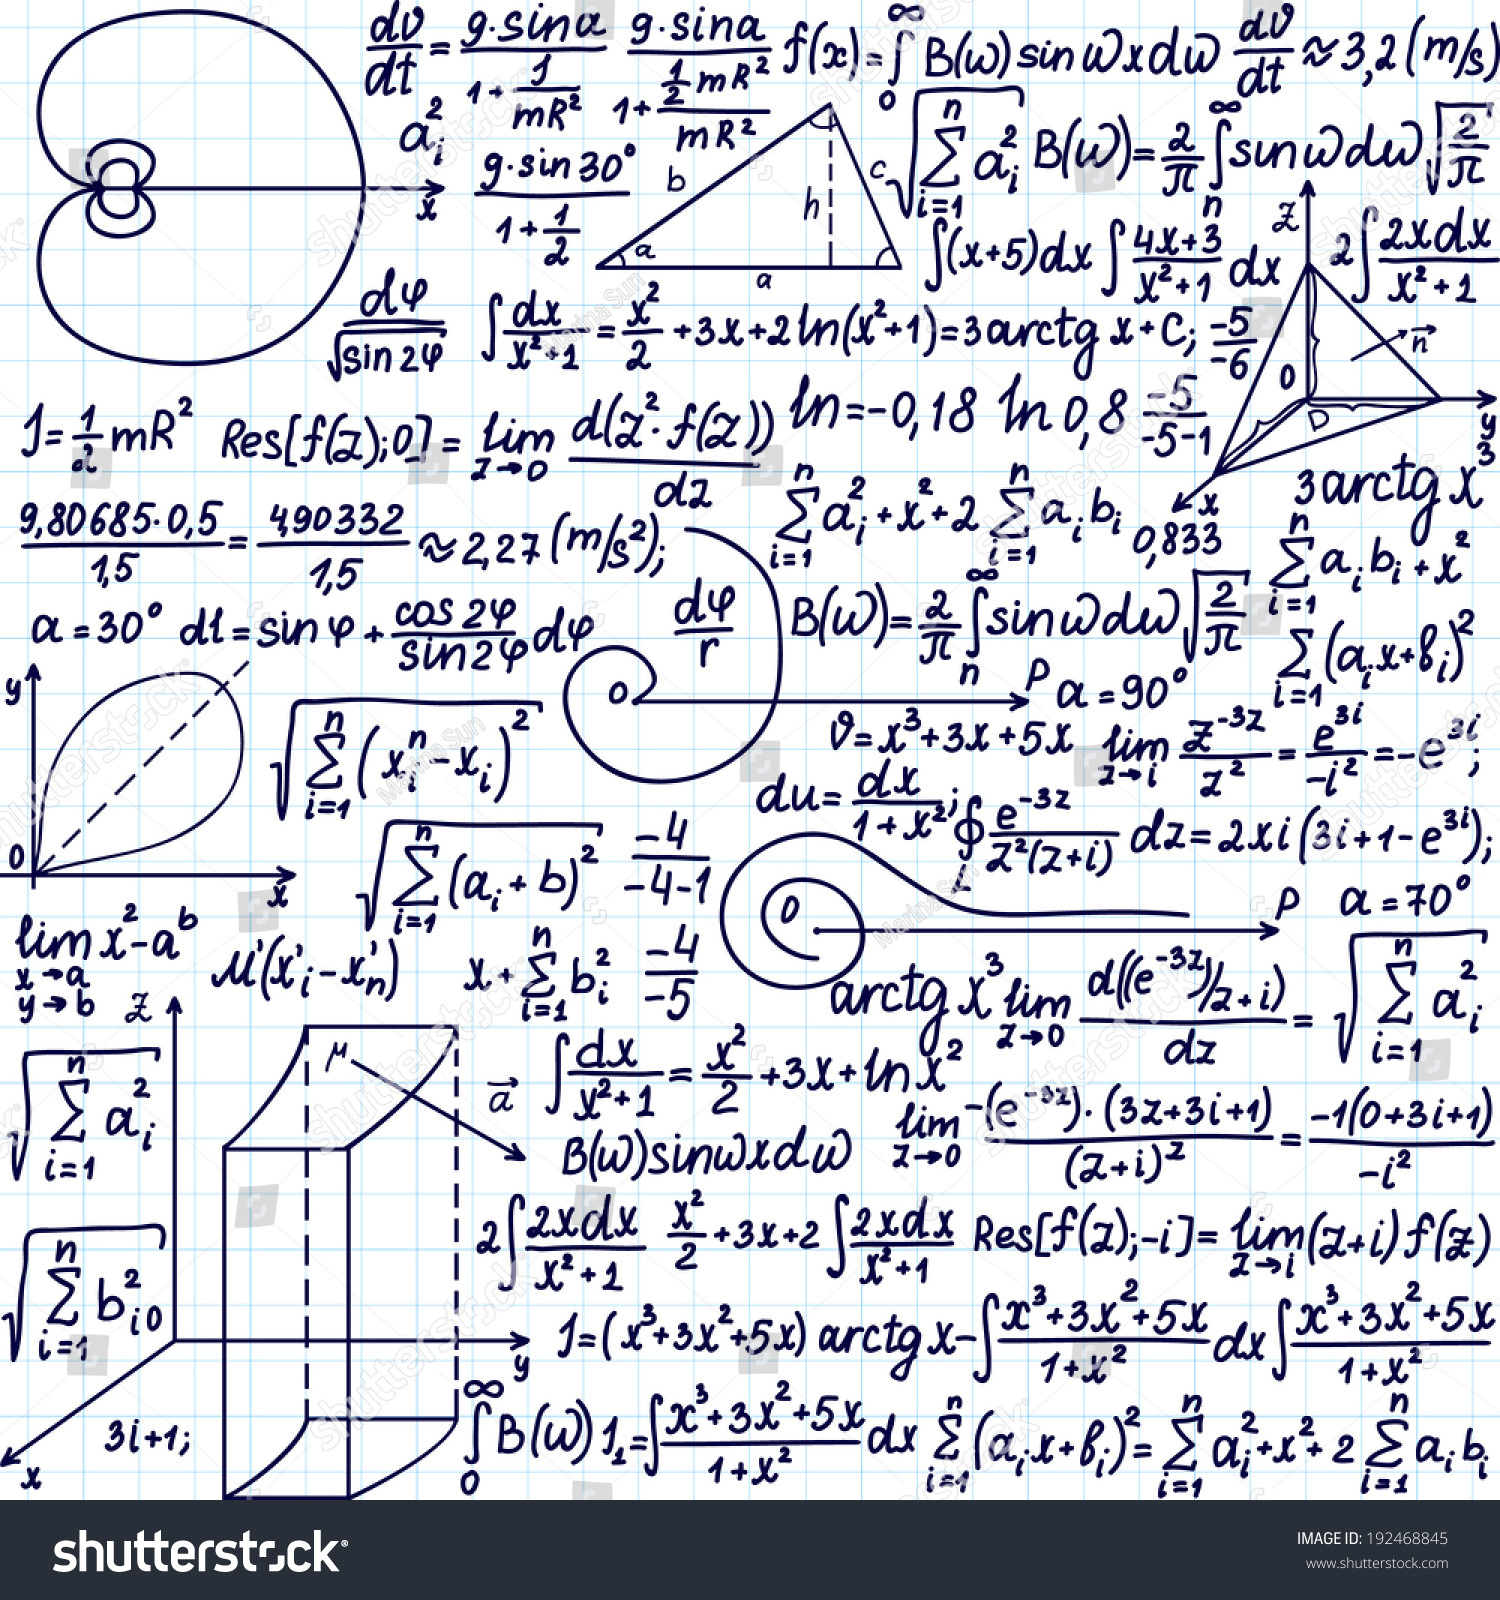 dv/dt = g·sinα/(1+1/mR²) g·sinα/(1+½mR²/mR²) f(x)=∫₀^∞ B(ω)sinωxdω dv/dt ≈3,2(m/s)
a²ᵢ g·sin30°/(1+1/2) b c h a a √(Σⁿᵢ₌₁ a²ᵢ) B(ω)=2/π ∫ₙ^∞ sinωdω √(2/π)
x ∫(x+5)dx ∫(4x+3)/(x²+1) dx Z 2∫2xdx/(x²+1)
dφ/√sin2φ ∫dx/(x²+1) = x²/2 +3x+2ln(x²+1)=3arctg x+C; -5/-6 O n⃗ D y x
J=½mR² Res[f(z);0]= lim z→0 d(z²·f(z))/dz ln=-0,18 ln0,8 -5/-5-1
9,80685·0,5/1,5 = 4,90332/1,5 ≈2,27(m/s²); Σⁿᵢ₌₁ a²ᵢ+x²+2 Σⁿᵢ₌₁ aᵢbᵢ 0,833 3arctg x³
Σⁿᵢ₌₁ aᵢbᵢ+x²
a=30° dl=sinφ+cos2φ/sin2φ dφ dφ/r B(ω)=2/π ∫ₙ^∞ sinωdω √(2/π) Σᵢ₌₁ (aᵢx+bᵢ)²
y O x O P a=90°
√(Σⁿᵢ₌₁ (xᵢⁿ-xᵢ)²) v=x³+3x+5x lim z→i z⁻³ᶻ/z² = e³ⁱ/-i² =-e³ⁱ;
du=dx/(1+x²); ∮_L e⁻³ᶻ/z²(z+i) dz=2xi(3i+1-e³ⁱ);
√(Σⁿᵢ₌₁ (aᵢ+b)²) -4/-4-1 O P a=70°
lim x→a y→b x²-aᵇ M'(x'ᵢ-x'ₙ) x+Σⁿᵢ₌₁ b²ᵢ -4/-5 arctg x³ lim z→0 d((e⁻³ᶻ)/z+i)/dz = √(Σⁿᵢ₌₁ a²ᵢ)
Z M a⃗ y x
√(Σⁿᵢ₌₁ a²ᵢ) ∫dx/(x²+1) = x²/2 +3x+ln x²
B(ω)sinωxdω lim z→0 -(e⁻³ᶻ)·(3z+3i+1)/(z+i)² = -1(0+3i+1)/-i²
√(Σⁿᵢ₌₁ b²ᵢ0) 2∫2xdx/(x²+1) x²/2 +3x+2∫2xdx/(x²+1) Res[f(z);-i]= lim z→i (z+i)f(z)
J=(x³+3x²+5x) arctg x-∫(x³+3x²+5x)/(1+x²) dx ∫(x³+3x²+5x)/(1+x²)
3i+1; ∫₀^∞ B(ω) J₁=∫(x³+3x²+5x)/(1+x²) dx Σⁿᵢ₌₁ (aᵢx+bᵢ)²= Σⁿᵢ₌₁ a²ᵢ+x²+2 Σⁿᵢ₌₁ aᵢbᵢ
shutterstock
IMAGE ID: 192468845
www.shutterstock.com